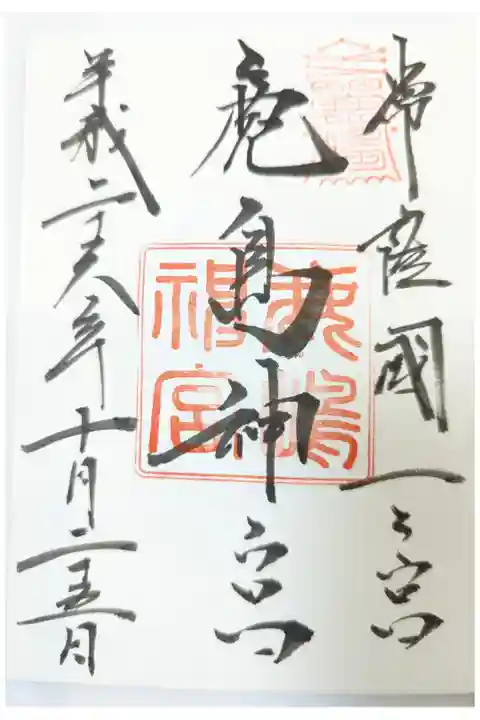 常陸國一之宮
鹿島神宮
平成二十六年十月二十五日
鹿嶋
神宮